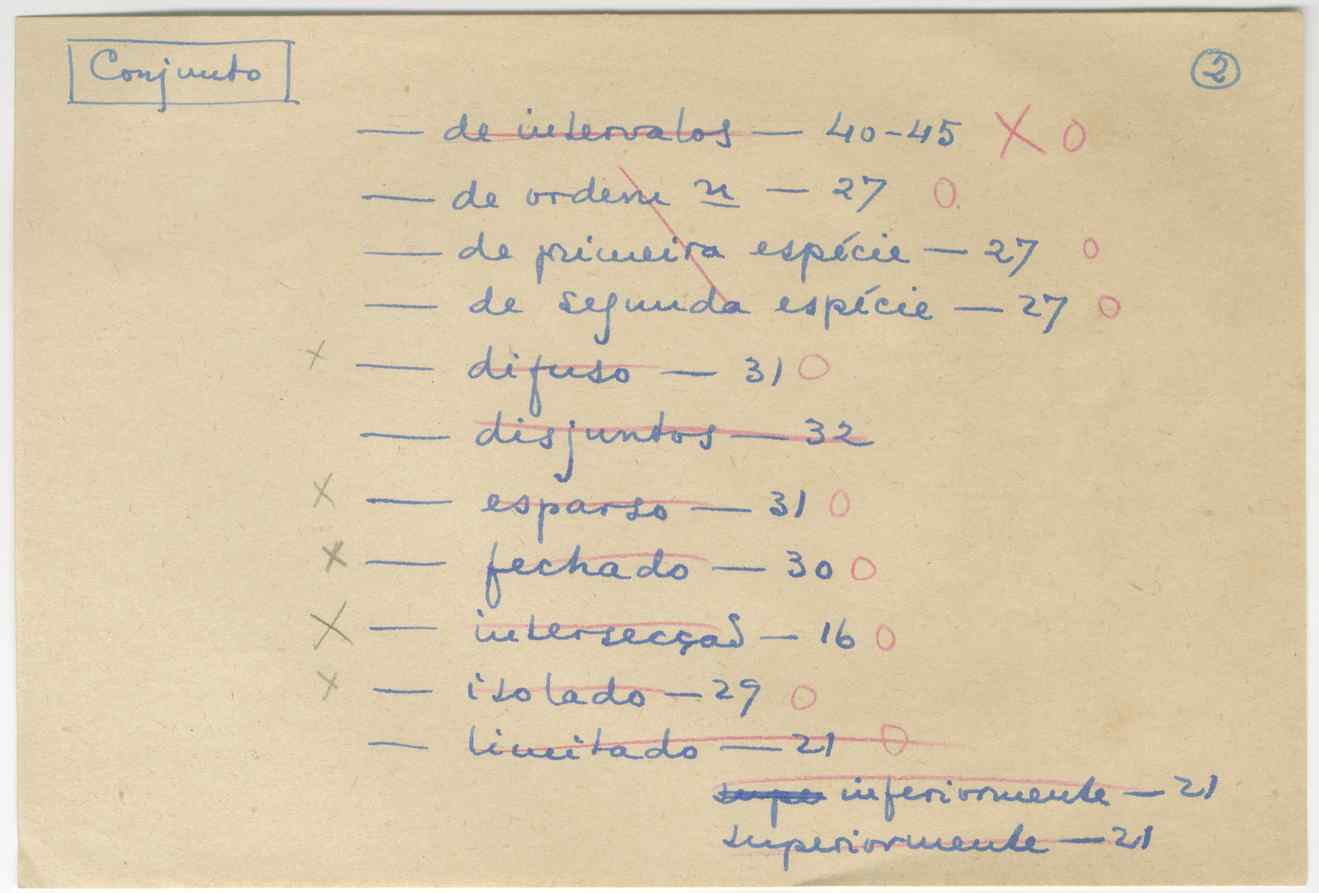 Conjunto
2
— de intervalos — 40-45 X 0
— de ordem n — 27 0
— de primeira espécie — 27 0
— de segunda espécie — 27 0
x — difuso — 31 0
— disjuntos — 32
x — esparso — 31 0
x — fechado — 30 0
x — intersecção — 16 0
x — isolado — 29 0
— limitado — 21 0
supe inferiormente — 21
superiormente — 21